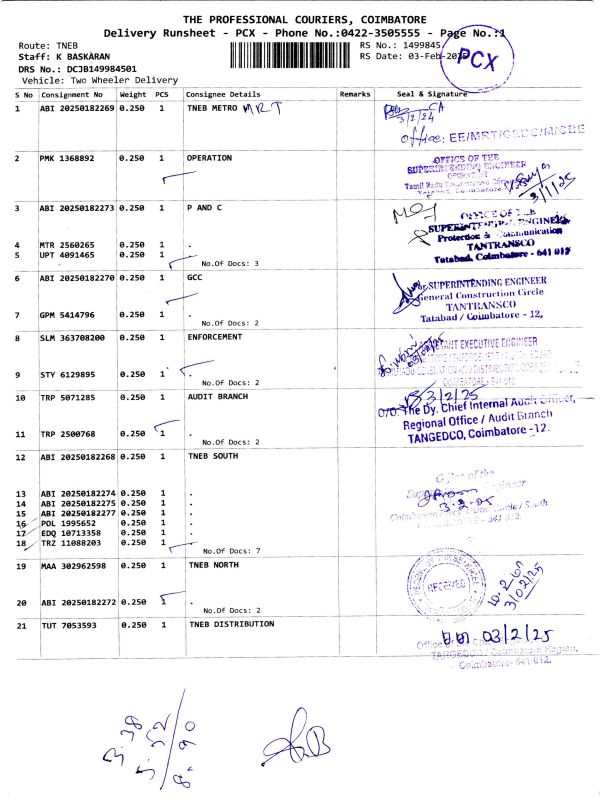 THE PROFESSIONAL COURIERS, COIMBATORE
Delivery Runsheet - PCX - Phone No.:0422-3505555 - Page No.:1
Route: TNEB
RS No.: 1499845
Staff: K BASKARAN
RS Date: 03-Feb-2025
PCX
DRS No.: DCJB149984501
Vehicle: Two Wheeler Delivery
S No Consignment No Weight PCS Consignee Details Remarks Seal & Signature
1 ABI 20250182269 0.250 1 TNEB METRO MRT
3/2/24
Office: EE/MRT/
2 PMK 1368892 0.250 1 OPERATION
OFFICE OF THE
SUPERINTENDING ENGINEER
OPERATION
3/1/25
3 ABI 20250182273 0.250 1 P AND C
OFFICE OF THE
SUPERINTENDING ENGINEER
Protection & Communication
TANTRANSCO
Tatabad, Coimbatore - 641 012
4 MTR 2560265 0.250 1 .
5 UPT 4091465 0.250 1 .
No.Of Docs: 3
6 ABI 20250182270 0.250 1 GCC
SUPERINTENDING ENGINEER
General Construction Circle
TANTRANSCO
Tatabad / Coimbatore - 12,
7 GPM 5414796 0.250 1 .
No.Of Docs: 2
8 SLM 363708200 0.250 1 ENFORCEMENT
EXECUTIVE ENGINEER
9 STY 6129895 0.250 1 .
No.Of Docs: 2
10 TRP 5071285 0.250 1 AUDIT BRANCH
3/2/25
O/O. The Dy. Chief Internal Audit Officer,
Regional Office / Audit Branch
TANGEDCO, Coimbatore -12.
11 TRP 2500768 0.250 1 .
No.Of Docs: 2
12 ABI 20250182268 0.250 1 TNEB SOUTH
Office of the
Engineer
3-2-25
Circle / South
641 012.
13 ABI 20250182274 0.250 1 .
14 ABI 20250182275 0.250 1 .
15 ABI 20250182277 0.250 1 .
16 POL 1995652 0.250 1 .
17 EDQ 10713358 0.250 1 .
18 TRZ 11088203 0.250 1 .
No.Of Docs: 7
19 MAA 302962598 0.250 1 TNEB NORTH
RECEIVED
3/02/25
20 ABI 20250182272 0.250 1 .
No.Of Docs: 2
21 TUT 7053593 0.250 1 TNEB DISTRIBUTION
03/2/25
TANGEDCO / Coimbatore Region,
Coimbatore - 641 012.